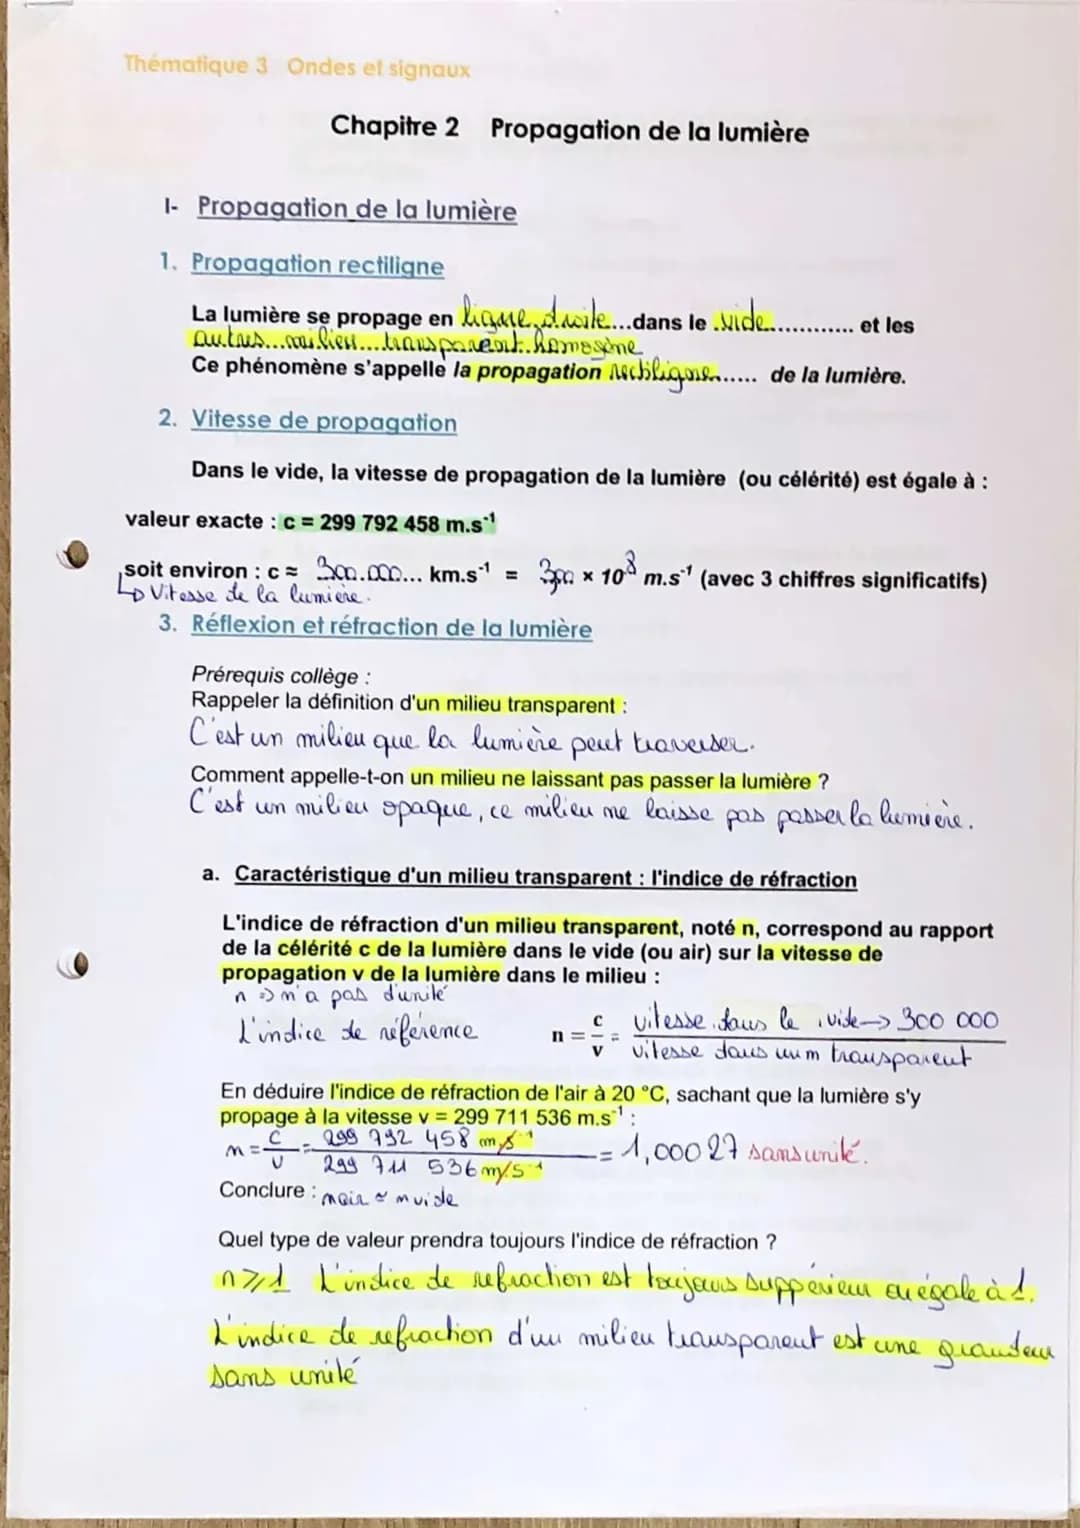 Thématique 3 Ondes et signaux
Chapitre 2 Propagation de la lumière
I- Propagation de la lumière
1. Propagation rectiligne
La lumière se propage en ligne droite...dans le .vide............. et les
autres...milieu...transparent.homogène
Ce phénomène s'appelle la propagation rectiligne...... de la lumière.
2. Vitesse de propagation
Dans le vide, la vitesse de propagation de la lumière (ou célérité) est égale à :
valeur exacte : c = 299 792 458 m.s⁻¹
soit environ : c ≈ 300.000... km.s⁻¹ = 3,00 × 10⁸ m.s⁻¹ (avec 3 chiffres significatifs)
↳ Vitesse de la lumière.
3. Réflexion et réfraction de la lumière
Prérequis collège :
Rappeler la définition d'un milieu transparent :
C'est un milieu que la lumière peut traverser.
Comment appelle-t-on un milieu ne laissant pas passer la lumière ?
C'est un milieu opaque, ce milieu ne laisse pas passer la lumière.
a. Caractéristique d'un milieu transparent : l'indice de réfraction
L'indice de réfraction d'un milieu transparent, noté n, correspond au rapport
de la célérité c de la lumière dans le vide (ou air) sur la vitesse de
propagation v de la lumière dans le milieu :
n => n'a pas d'unité
L'indice de référence n = c/v = vitesse dans le vide -> 300 000 / vitesse dans un m transparent
En déduire l'indice de réfraction de l'air à 20 °C, sachant que la lumière s'y
propage à la vitesse v = 299 711 536 m.s⁻¹ :
n = c/v = 299 792 458 m.s⁻¹ / 299 711 536 m.s⁻¹ = 1,00027 sans unité.
Conclure : nair ≈ nvide
Quel type de valeur prendra toujours l'indice de réfraction ?
n ⩾ 1 L'indice de refraction est toujours suppérieur ou égale à 1.
L'indice de refraction d'un milieu transparent est une grandeur
sans unité